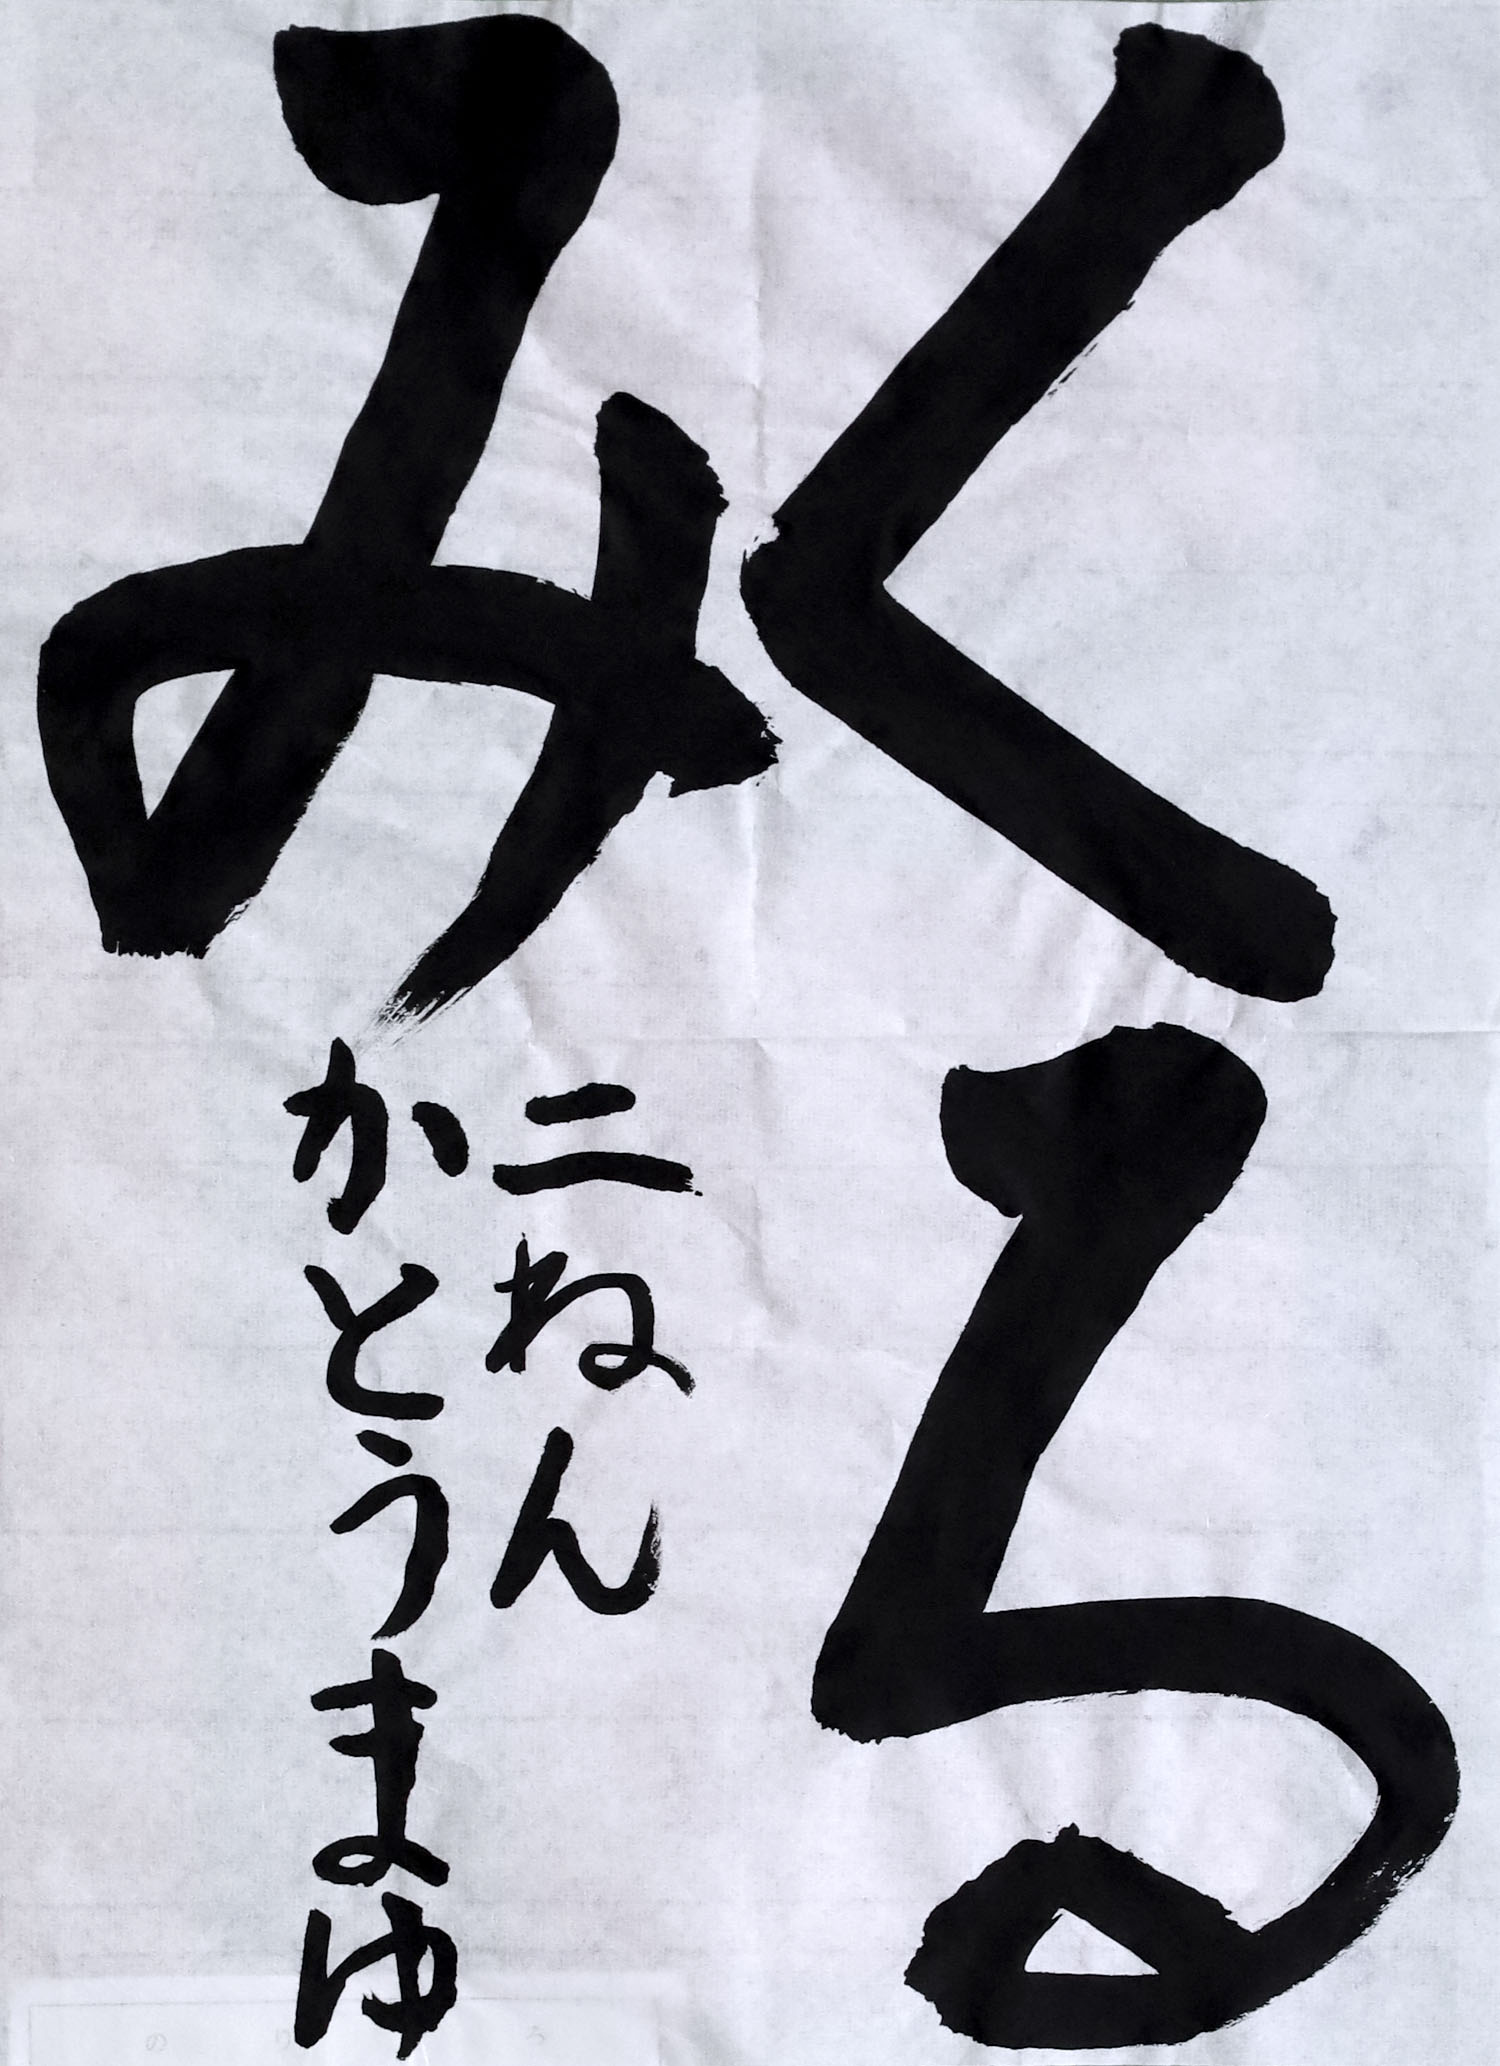 くる
み
二ねん
かとうまゆ